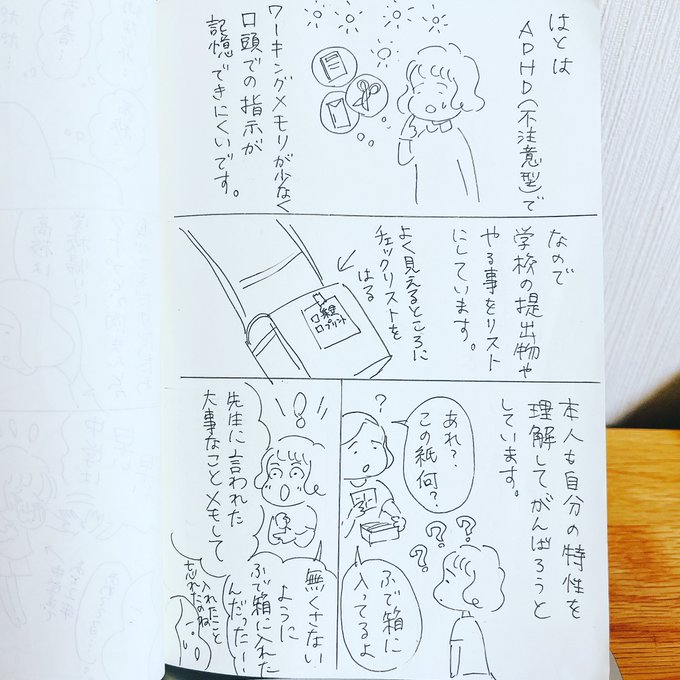 はとは
ADHD(不注意型)で
ワーキングメモリが少なく
口頭での指示が
記憶できにくいです。
なので
学校の提出物や
やる事をリスト
にしています。
よく見えるところに
チェックリストを
はる
□プリント
本人も自分の特性を
理解してがんばろうと
しています。
あれ?
この紙何?
?
???
ふで箱に
入ってるよ
!
無くさない
ように
ふで箱に入れた
んだった!
先生に言われた
大事なことメモして
入れたこと
忘れたのね